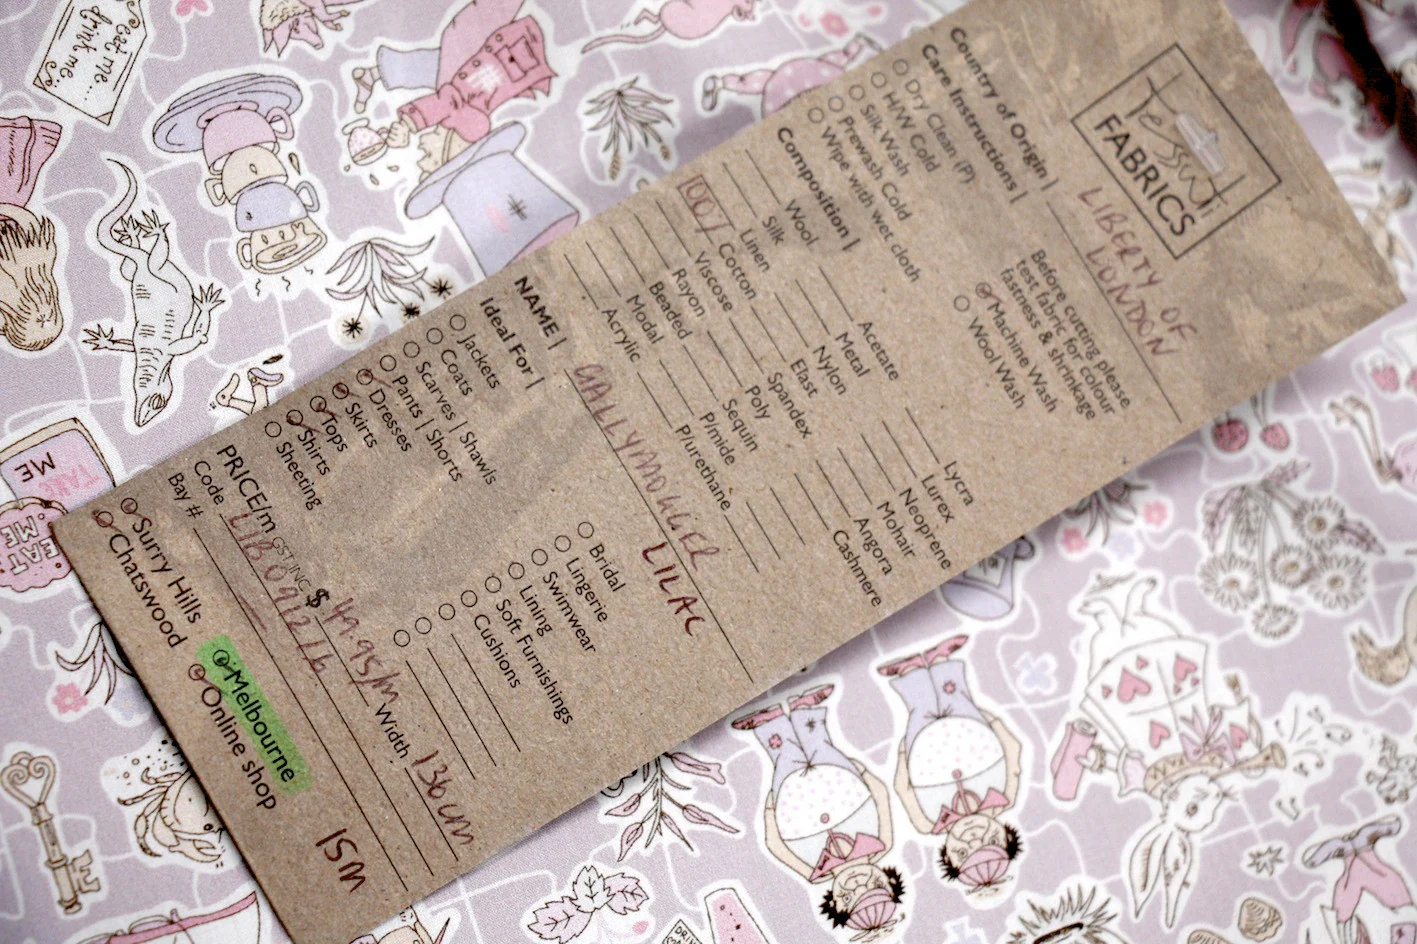 Tessuti
FABRICS
LIBERTY OF
LONDON
Country of Origin |
Care Instructions |
Before cutting please
test fabric for colour
fastness & shrinkage
Dry Clean (P)
H/W Cold
Silk Wash
Prewash Cold
Wipe with wet cloth
Machine Wash
Wool Wash
Composition |
Wool
Silk
Linen
100% Cotton
Viscose
Rayon
Beaded
Modal
Acrylic
Acetate
Metal
Nylon
Elast
Spandex
Poly
Sequin
P/mide
P/urethane
Lycra
Lurex
Neoprene
Mohair
Angora
Cashmere
NAME | GALLYMOGGLER
LILAC
Ideal For |
Jackets
Coats
Scarves | Shawls
Pants | Shorts
Dresses
Skirts
Tops
Shirts
Sheeting
Bridal
Lingerie
Swimwear
Lining
Soft Furnishings
Cushions
PRICE/m GST INC $ 49.95/m Width 136cm
Code LIB0912/6
Bay #
15M
Surry Hills
Chatswood
Melbourne
Online shop
eat me...
drink me...
TAKE
ME
EAT
ME